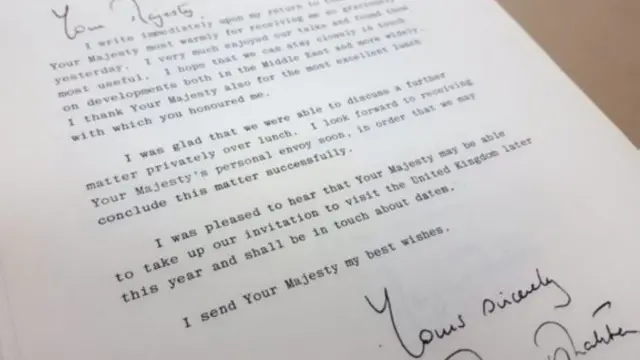 Your Majesty
I write immediately upon my return to
Your Majesty most warmly for receiving me so graciously
yesterday. I very much enjoyed our talks and found them
most useful. I hope that we can stay closely in touch
on developments both in the Middle East and more widely.
I thank Your Majesty also for the most excellent lunch
with which you honoured me.
I was glad that we were able to discuss a further
matter privately over lunch. I look forward to receiving
Your Majesty's personal envoy soon, in order that we may
conclude this matter successfully.
I was pleased to hear that Your Majesty may be able
to take up our invitation to visit the United Kingdom later
this year and shall be in touch about dates.
I send Your Majesty my best wishes.
Yours sincerely